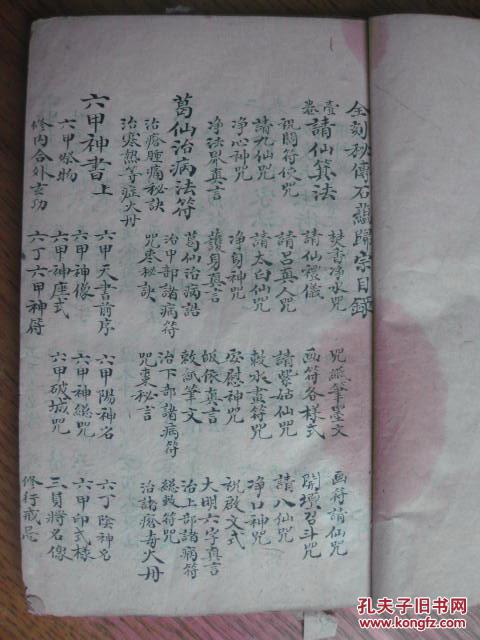 全刻秘傳石蘭歸宗目錄
壹卷 請仙箕法 焚香净水咒 咒紙筆墨文 画符請仙咒
祝閗符使咒 請仙禮儀 画符各様式 開壇召斗咒
請九仙咒 請呂真人咒 請紫姑仙咒 請八仙咒
净心神咒 請太白仙咒 敕水畫符咒 净口神咒
净法界真言 净身神咒 安慰神咒 祝啟文式
護身真言 皈依真言 大明六字真言
葛仙治病法符 葛仙治病語 敕紙筆文 治上部諸病符
治甲部諸病符 治下部諸病符 総敕符咒
治瘡腫痛秘訣 咒枣秘訣 咒棗秘言 治諸瘡毒火丹
治寒熱等症火丹
六甲神書上 六甲天書前序 六甲陽神名 六丁陰神名
六甲祭物 六甲神像 六甲神総咒 六甲印式様
修内合外玄功 六甲神座式 六甲破城咒 三員將名像
六丁六甲神符 修行戒忌
孔夫子旧书网
www.kongfz.com